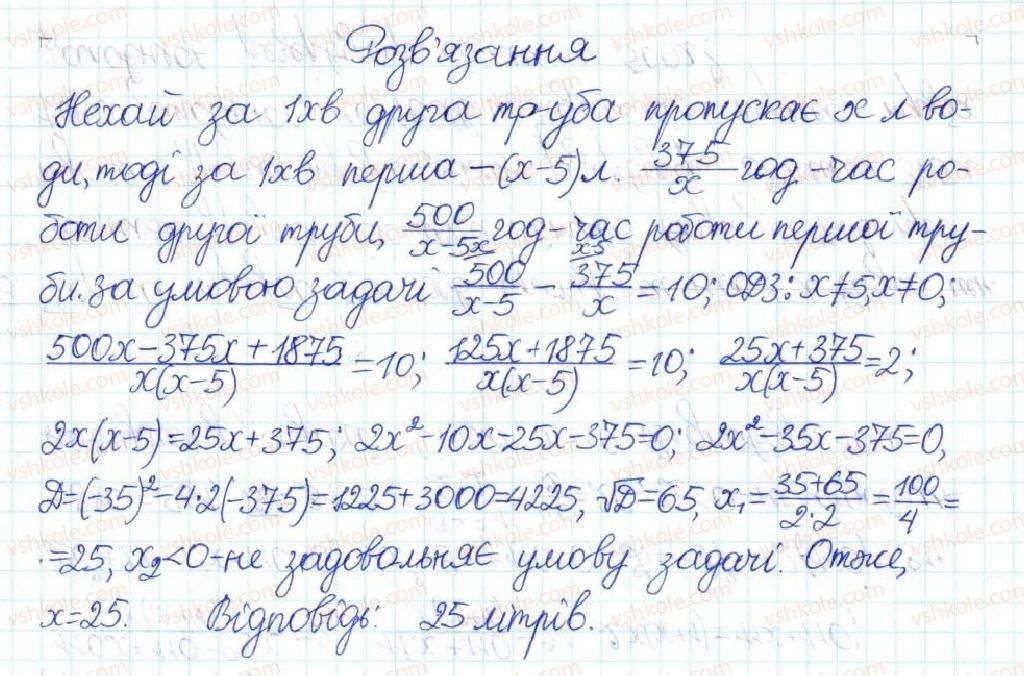 Розв'язання
Нехай за 1хв друга труба пропускає x л во-
ди, тоді за 1хв перша – (x-5) л. 375/x год – час ро-
боти другої труби, 500/(x-5) год – час роботи першої тру-
би. За умовою задачі 500/(x-5) - 375/x = 10; ОДЗ: x≠5, x≠0;
(500x-375x+1875)/(x(x-5)) = 10; (125x+1875)/(x(x-5)) = 10; (25x+375)/(x(x-5)) = 2;
2x(x-5)=25x+375; 2x²-10x-25x-375=0; 2x²-35x-375=0,
D=(-35)²-4·2(-375)=1225+3000=4225, √D=65, x₁=(35+65)/(2·2)=100/4=
=25, x₂<0 – не задовольняє умову задачі. Отже,
x=25. Відповідь: 25 літрів.